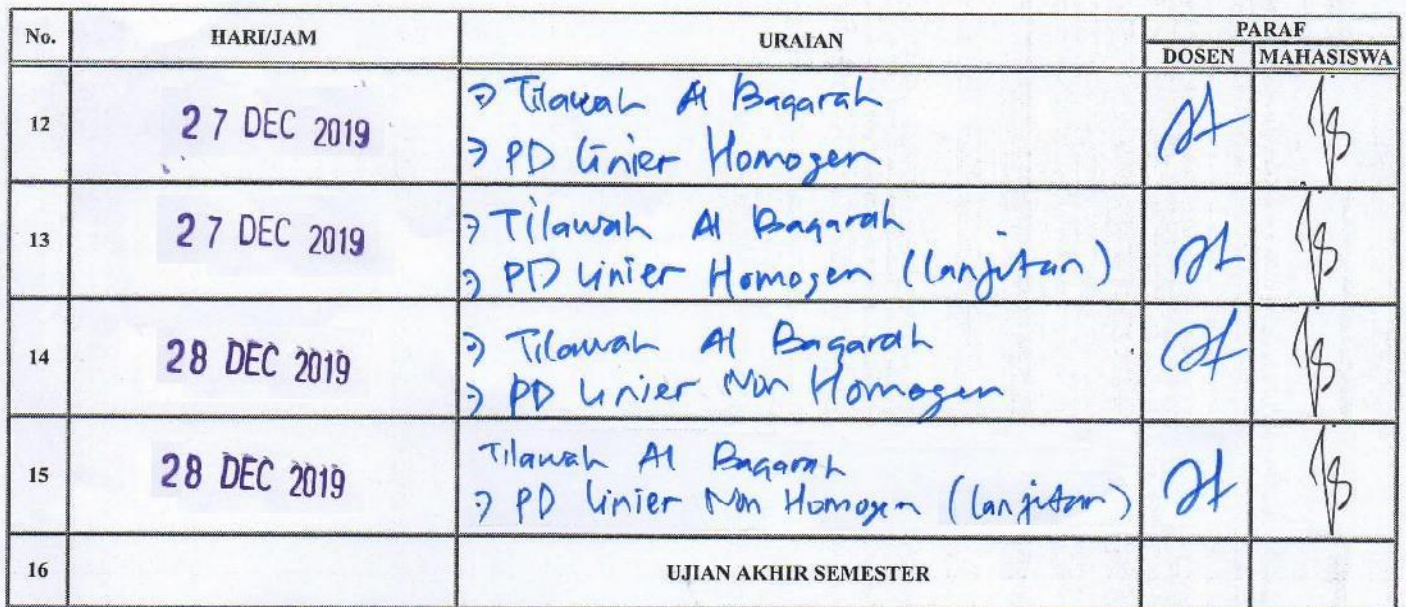 No. HARI/JAM URAIAN PARAF
DOSEN MAHASISWA
12 27 DEC 2019
→ Tilawah Al Baqarah
→ PD Linier Homogen
13 27 DEC 2019
→ Tilawah Al Baqarah
→ PD Linier Homogen (lanjutan)
14 28 DEC 2019
→ Tilawah Al Baqarah
→ PD Linier Non Homogen
15 28 DEC 2019
Tilawah Al Baqarah
→ PD Linier Non Homogen (lanjutan)
16 UJIAN AKHIR SEMESTER